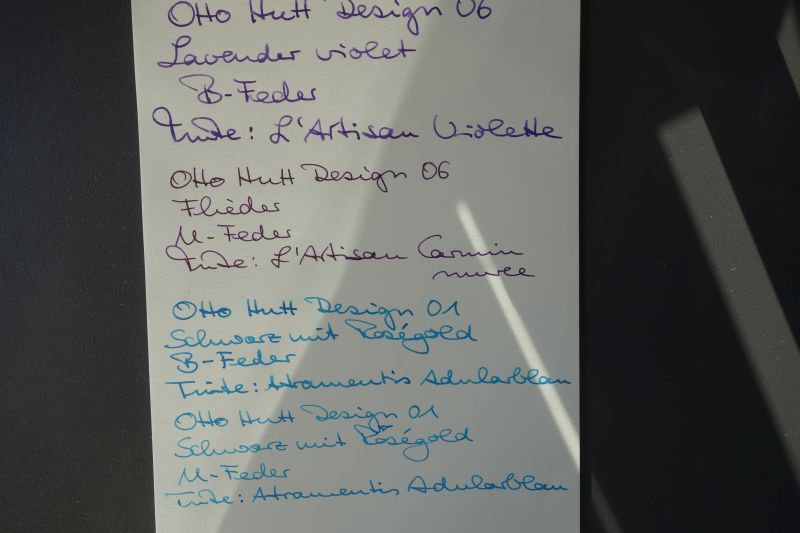 Otto Hutt Design 06
Lavender violet
B-Feder
Tinte: L'Artisan Violette
Otto Hutt Design 06
Flieder
M-Feder
Tinte: L'Artisan Carmin
muree
Otto Hutt Design 01
Schwarz mit Roségold
B-Feder
Tinte: Atramentis Adularblau
Otto Hutt Design 01
Schwarz mit Roségold
M-Feder
Tinte: Atramentis Adularblau